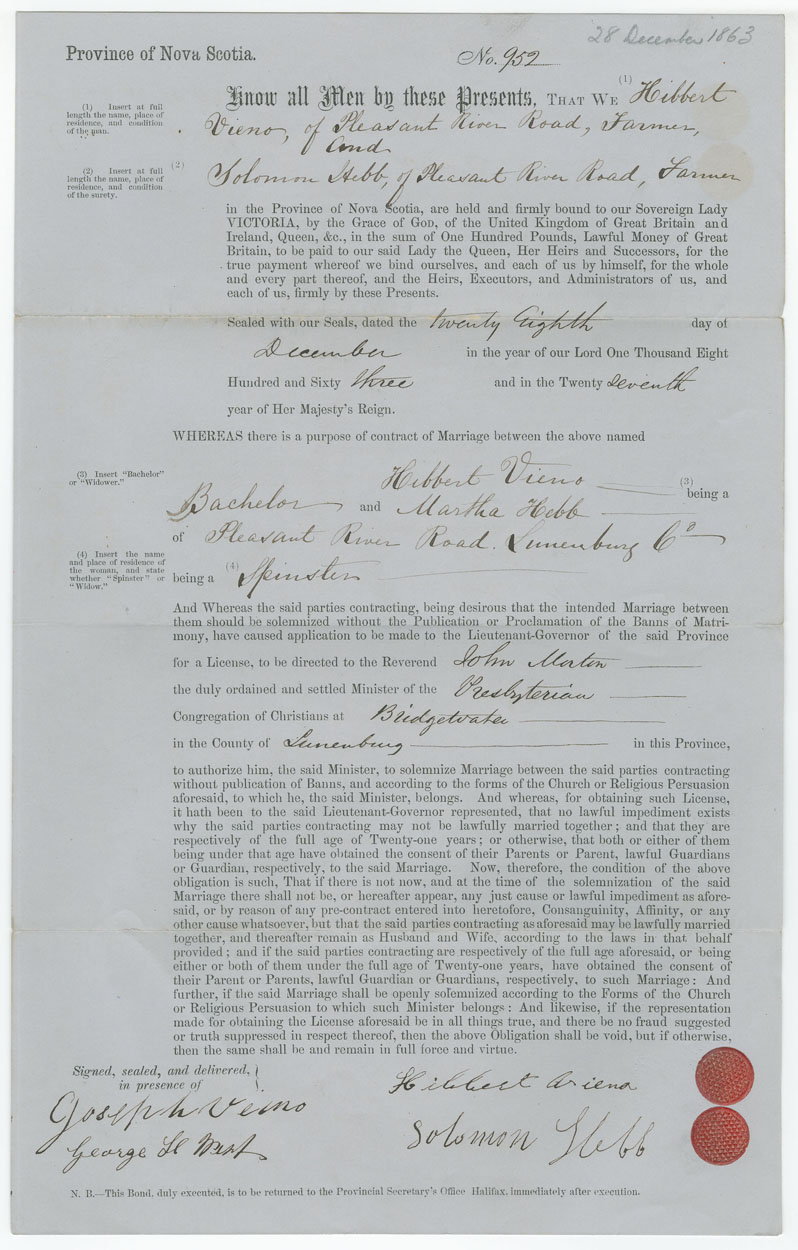 28 December 1863
Province of Nova Scotia.
No. 952
Know all Men by these Presents, THAT WE (1) Hibbert
(1) Insert at full length the name, place of residence, and condition of the man.
Vieno, of Pleasant River Road, Farmer,
and
(2) Insert at full length the name, place of residence, and condition of the surety.
(2) Solomon Hebb, of Pleasant River Road, Farmer
in the Province of Nova Scotia, are held and firmly bound to our Sovereign Lady
VICTORIA, by the Grace of GOD, of the United Kingdom of Great Britain and
Ireland, Queen, &c., in the sum of One Hundred Pounds, Lawful Money of Great
Britain, to be paid to our said Lady the Queen, Her Heirs and Successors, for the
true payment whereof we bind ourselves, and each of us by himself, for the whole
and every part thereof, and the Heirs, Executors, and Administrators of us, and
each of us, firmly by these Presents.
Sealed with our Seals, dated the twenty Eighth day of
December in the year of our Lord One Thousand Eight
Hundred and Sixty three and in the Twenty seventh
year of Her Majesty's Reign.
WHEREAS there is a purpose of contract of Marriage between the above named
(3) Insert "Bachelor" or "Widower."
Hibbert Vieno (3) being a
Bachelor and Martha Hebb
of Pleasant River Road. Lunenburg Co
(4) Insert the name and place of residence of the woman, and state whether "Spinster" or "Widow."
being a (4) Spinster
And Whereas the said parties contracting, being desirous that the intended Marriage between
them should be solemnized without the Publication or Proclamation of the Banns of Matri-
mony, have caused application to be made to the Lieutenant-Governor of the said Province
for a License, to be directed to the Reverend John Morton
the duly ordained and settled Minister of the Presbyterian
Congregation of Christians at Bridgewater
in the County of Lunenburg in this Province,
to authorize him, the said Minister, to solemnize Marriage between the said parties contracting
without publication of Banns, and according to the forms of the Church or Religious Persuasion
aforesaid, to which he, the said Minister, belongs. And whereas, for obtaining such License,
it hath been to the said Lieutenant-Governor represented, that no lawful impediment exists
why the said parties contracting may not be lawfully married together; and that they are
respectively of the full age of Twenty-one years; or otherwise, that both or either of them
being under that age have obtained the consent of their Parents or Parent, lawful Guardians
or Guardian, respectively, to the said Marriage. Now, therefore, the condition of the above
obligation is such, That if there is not now, and at the time of the solemnization of the said
Marriage there shall not be, or hereafter appear, any just cause or lawful impediment as afore-
said, or by reason of any pre-contract entered into heretofore, Consanguinity, Affinity, or any
other cause whatsoever, but that the said parties contracting as aforesaid may be lawfully married
together, and thereafter remain as Husband and Wife, according to the laws in that behalf
provided; and if the said parties contracting are respectively of the full age aforesaid, or being
either or both of them under the full age of Twenty-one years, have obtained the consent of
their Parent or Parents, lawful Guardian or Guardians, respectively, to such Marriage: And
further, if the said Marriage shall be openly solemnized according to the Forms of the Church
or Religious Persuasion to which such Minister belongs: And likewise, if the representation
made for obtaining the License aforesaid be in all things true, and there be no fraud suggested
or truth suppressed in respect thereof, then the above Obligation shall be void, but if otherwise,
then the same shall be and remain in full force and virtue.
Signed, sealed, and delivered,
in presence of
Hibbert Vieno
Joseph Veino
Solomon Hebb
George West
N. B.—This Bond, duly executed, is to be returned to the Provincial Secretary's Office Halifax, immediately after execution.